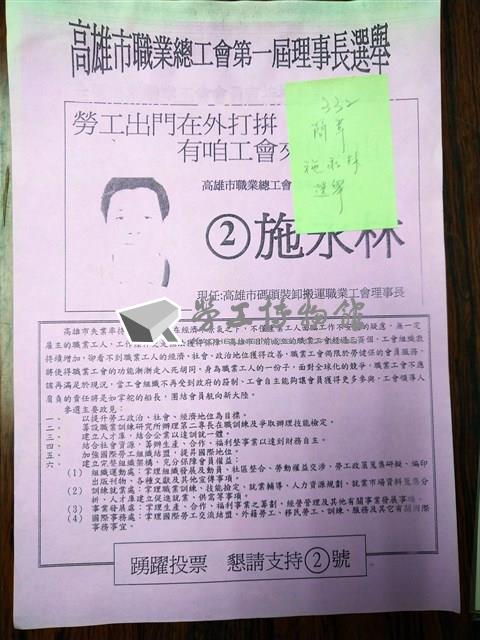 高雄市職業總工會第一屆理事長選舉
勞工出門在外打拚
有咱工會來
332
簡章
施永林
選舉
高雄市職業總工會
②施永林
現任:高雄市碼頭裝卸搬運職業工會理事長
勞工博物館
高雄市失業率持
雇主的職業工人,工作
持續增加,卻看不到職業工人的經濟、社會、政治地位獲得改善,職業工會侷限於勞健保的會員服務,
將使得職業工會的功能漸漸走入死胡同,身為職業工人的一份子,面對全球化的競爭,職業工會不應
該再滿足於現況,當工會組織不再受到政府的箝制,工會自主能夠讓會員獲得更多參與,工會領導人
肩負的責任將是如掌舵的船長,團結會員航向新大陸。
參選主要政見:
一、以提升勞工政治、社會、經濟地位為目標。
二、籌設職業訓練研究所辦理第二專長在職訓練及爭取辦理技能檢定。
三、建立人才庫,結合企業以達訓就一體。
四、結合社會資源,籌辦生產、合作、福利整事業以達到財務自主。
五、加強國際勞工組織結盟,提昇國際地位。
六、建立完整組織架構,充分保障會員權益:
(1) 組織運動處:掌理組織發展及動員、社區整合、勞動權益交涉、勞工政策蒐集研擬、編印
出版刊物、各種文獻及其他宣傳事項。
(2) 訓練就業處:掌理職業訓練、技能檢定、就業輔導、人力資源規劃、就業市場資料蒐集分
析、人才庫建立促進就業、供需等事項。
(3) 事業發展處:掌理生產、合作、福利事業之籌劃、經營管理及其他有關事業發展事項。
(4) 國際事務處:掌理國際勞工交流結盟、外籍勞工、移民勞工、訓練、服務及其它有關國際
事務事宜。
踴躍投票 懇請支持②號